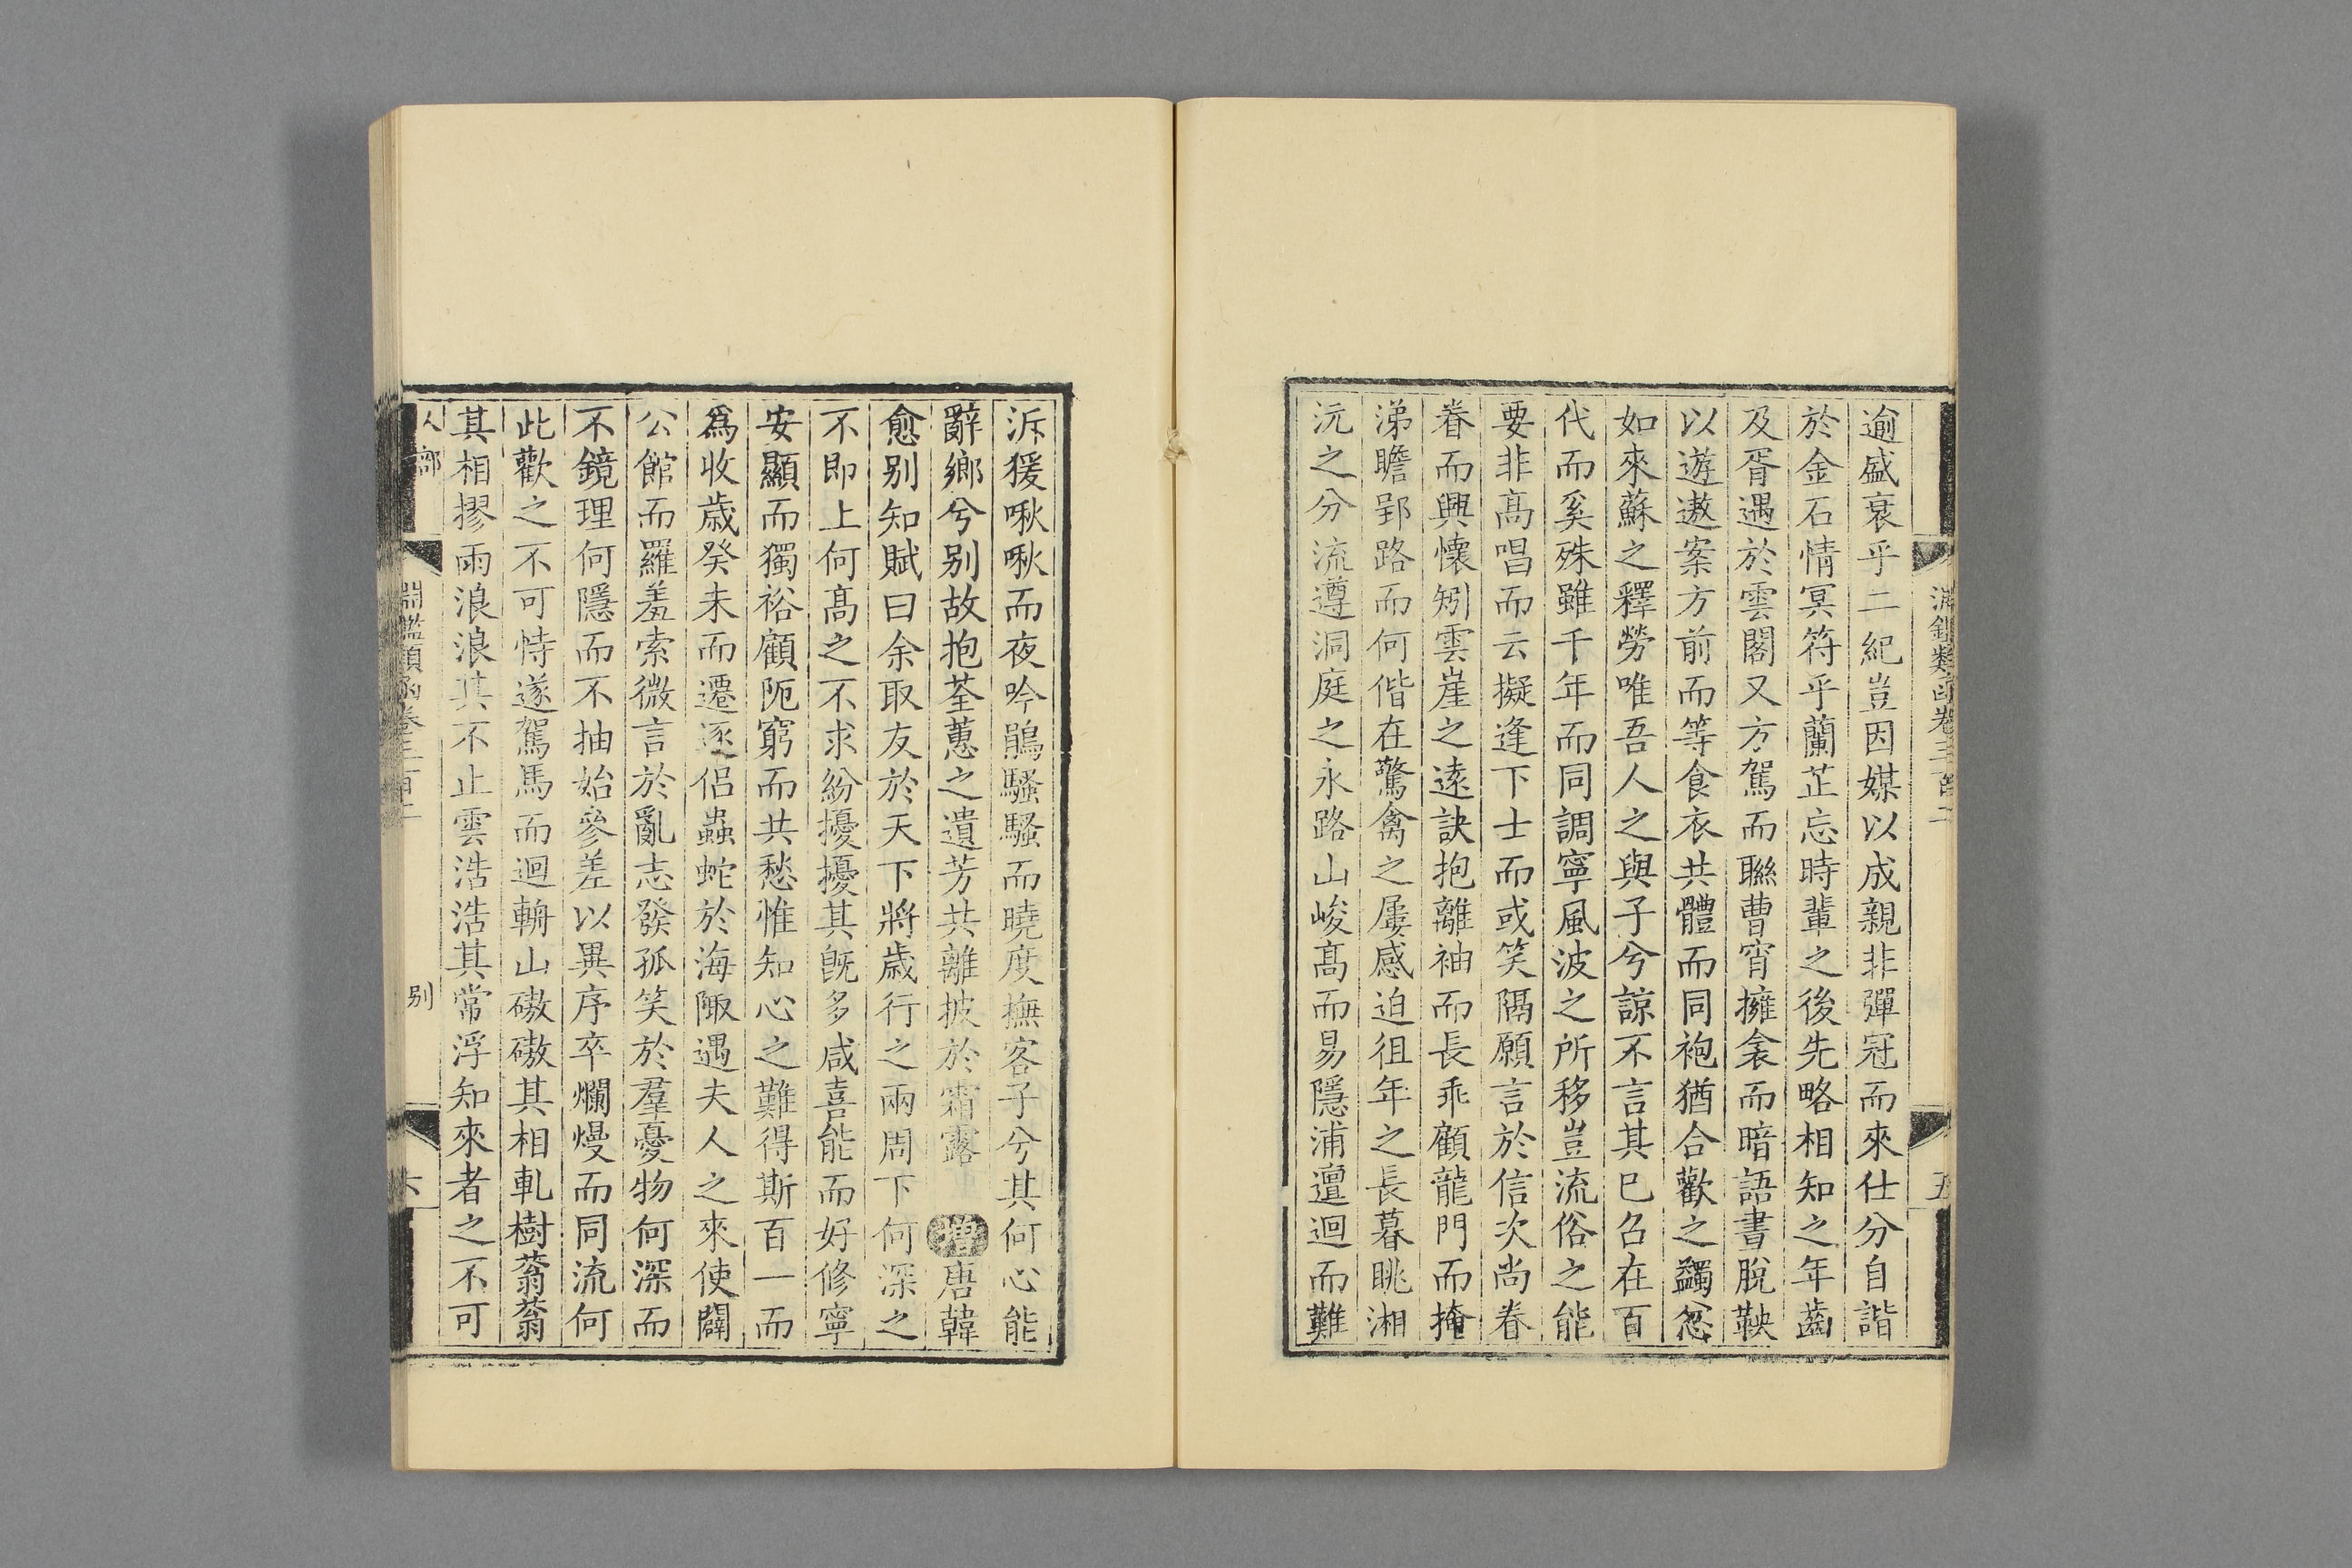 逾盛衰乎二紀豈因媒以成親非彈冠而來仕分自諧
於金石情冥符乎蘭芷忘時輩之後先略相知之年齒
及胥遇於雲閣又方駕而聯曹宵擁衾而暗語晝脫鞅
以遊遨案方前而等食衣共體而同袍猶合歡之蠲忿
如來蘇之釋勞唯吾人之與子兮諒不言其已㕥在百
代而奚殊雖千年而同調寧風波之所移豈流俗之能
要非髙唱而云擬逢下士而或笑隔願言於信次尚眷
眷而興懷矧雲崖之遠訣抱離袖而長乖顧龍門而掩
涕瞻郢路而何偕在驚禽之屢感迫徂年之長暮眺湘
沅之分流遵洞庭之永路山峻髙而易隱浦邅迴而難
泝猨啾啾而夜吟鵑騷騷而曉度撫客子兮其何心能
辭鄉兮别故抱荃蕙之遺芳共離披於霜露 增唐韓
愈别知賦曰余取友於天下將歲行之兩周下何深之
不即上何髙之不求紛擾擾其旣多咸喜能而好修寧
安顯而獨裕顧阨窮而共愁惟知心之難得斯百一而
爲收歲癸未而遷逐侶蟲蛇於海陬遇夫人之來使闢
公館而羅羞索微言於亂志發孤笑於羣憂物何深而
不鏡理何隱而不抽始參差以異序卒爛熳而同流何
此歡之不可恃遂駕馬而迴輈山磝磝其相軋樹蓊蓊
其相摎雨浪浪其不止雲浩浩其常浮知來者之不可
人部
淵鑑類函卷三百二
别
六